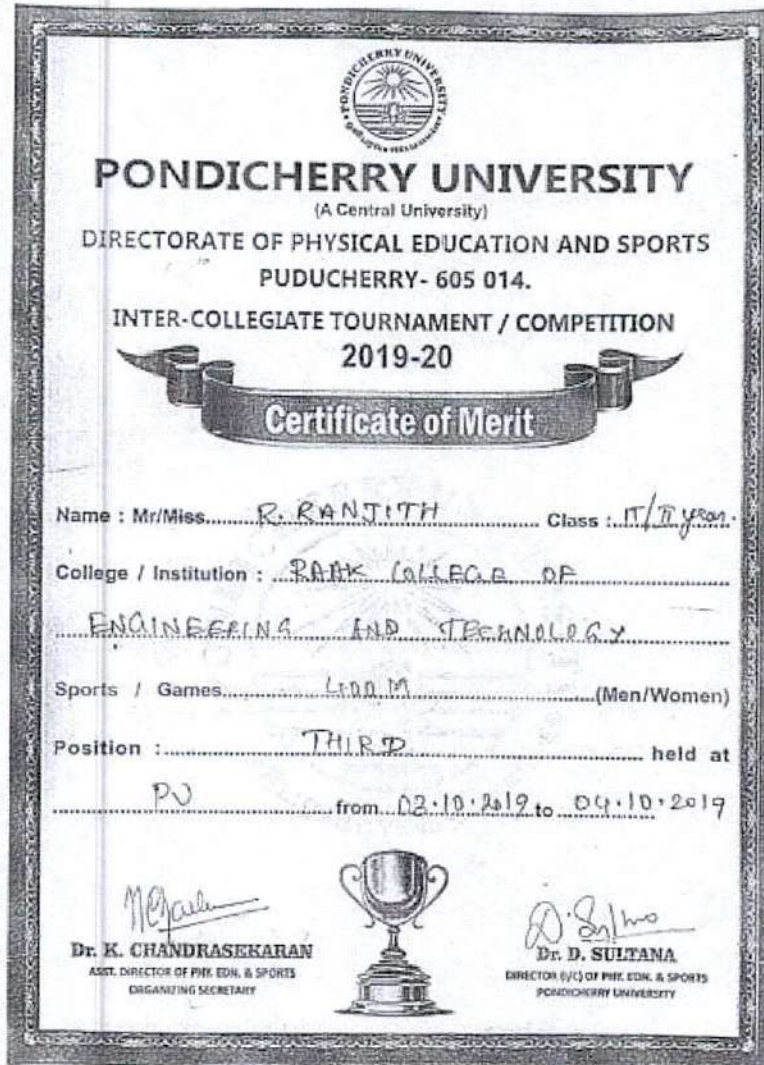 PONDICHERRY UNIVERSITY
PONDICHERRY UNIVERSITY
(A Central University)
DIRECTORATE OF PHYSICAL EDUCATION AND SPORTS
PUDUCHERRY- 605 014.
INTER-COLLEGIATE TOURNAMENT / COMPETITION
2019-20
Certificate of Merit
Name : Mr/Miss........R. RANJITH........ Class : IT/II year.
College / Institution : RAAK COLLEGE OF
ENGINEERING AND TECHNOLOGY
Sports / Games........400 M........(Men/Women)
Position :........THIRD........ held at
PU ........from 03.10.2019 to 04.10.2019
Dr. K. CHANDRASEKARAN Dr. D. SULTANA
ASST. DIRECTOR OF PHY. EDN. & SPORTS DIRECTOR (I/C) OF PHY. EDN. & SPORTS
ORGANIZING SECRETARY PONDICHERRY UNIVERSITY